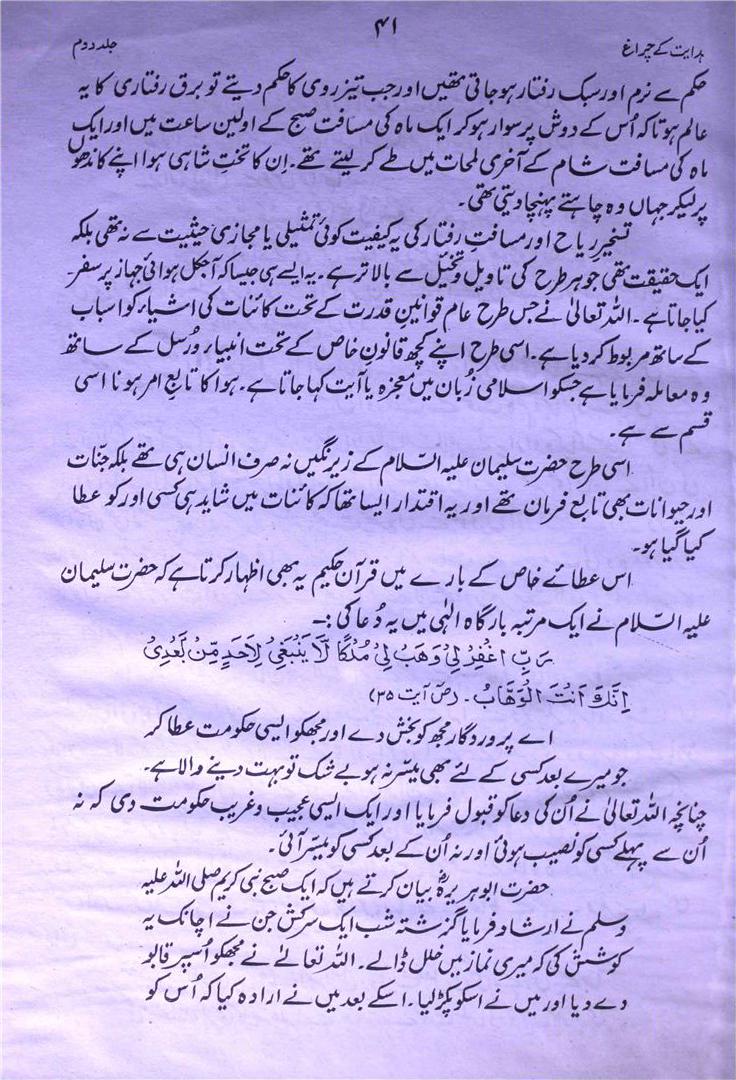 ۴۱
ہدایت کے چراغ
جلد دوم
حکم سے نرم اور سبک رفتار ہو جاتی تھیں اور جب تیز روی کا حکم دیتے تو برق رفتاری کا یہ
عالم ہوتا کہ اُس کے دوش پر سوار ہو کر ایک ماہ کی مسافت صبح کے اولین ساعت میں اور ایک
ماہ کی مسافت شام کے آخری لمحات میں طے کر لیتے تھے۔ اِن کا تختِ شاہی ہوا اپنے کاندھوں
پر لیکر جہاں وہ چاہتے پہنچا دیتی تھی۔
تسخیرِ ریاح اور مسافتِ رفتار کی یہ کیفیت کوئی تمثیلی یا مجازی حیثیت سے نہ تھی بلکہ
ایک حقیقت تھی جو ہر طرح کی تاویل و تخیل سے بالاتر ہے۔ یہ ایسے ہی جیسا کہ آجکل ہوائی جہاز پر سفر
کیا جاتا ہے۔ اللہ تعالیٰ نے جس طرح عام قوانینِ قدرت کے تحت کائنات کی اشیاء کو اسباب
کے ساتھ مربوط کر دیا ہے۔ اسی طرح اپنے کچھ قانونِ خاص کے تحت انبیاء و رُسل کے ساتھ
وہ معاملہ فرمایا ہے جسکو اسلامی زُبان میں معجزہ یا آیت کہا جاتا ہے۔ ہوا کا تابعِ امر ہونا اسی
قسم سے ہے۔
اسی طرح حضرت سلیمان علیہ السّلام کے زیرِ نگیں نہ صرف انسان ہی تھے بلکہ جنّات
اور حیوانات بھی تابع فرمان تھے اور یہ اقتدار ایسا تھا کہ کائنات میں شاید ہی کسی اور کو عطا
کیا گیا ہو۔
اس عطائے خاص کے بارے میں قرآن حکیم یہ بھی اظہار کرتا ہے کہ حضرت سلیمان
علیہ السّلام نے ایک مرتبہ بارگاہ الٰہی میں یہ دُعا کی :۔
رَبِّ اغْفِرْ لِیْ وَهَبْ لِیْ مُلْکًا لَّا یَنْبَغِیْ لِاَحَدٍ مِّنْ بَعْدِیْ
اِنَّكَ اَنْتَ الْوَهَّابُ۔ (صٓ آیت ۳۵)
اے پروردگار مجھ کو بخش دے اور مجھکو ایسی حکومت عطا کر
جو میرے بعد کسی کے لئے بھی میسّر نہ ہو بے شک تو بہت دینے والا ہے۔
چنانچہ اللہ تعالیٰ نے اُن کی دعا کو قبول فرمایا اور ایک ایسی عجیب و غریب حکومت دی کہ نہ
اُن سے پہلے کسی کو نصیب ہوئی اور نہ اُن کے بعد کسی کو میسّر آئی۔
حضرت ابو ہریرہؓ بیان کرتے ہیں کہ ایک صبح نبی کریم صلی اللہ علیہ
وسلم نے ارشاد فرمایا گزشتہ شب ایک سرکش جن نے اچانک یہ
کوشش کی کہ میری نماز میں خلل ڈالے۔ اللہ تعالےٰ نے مجھکو اُسپر قابو
دے دیا اور میں نے اسکو پکڑ لیا۔ اسکے بعد میں نے ارادہ کیا کہ اُس کو